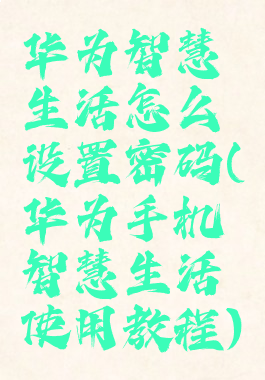 华为智慧
生活怎么
设置密码(
华为手机
智慧生活
使用教程)